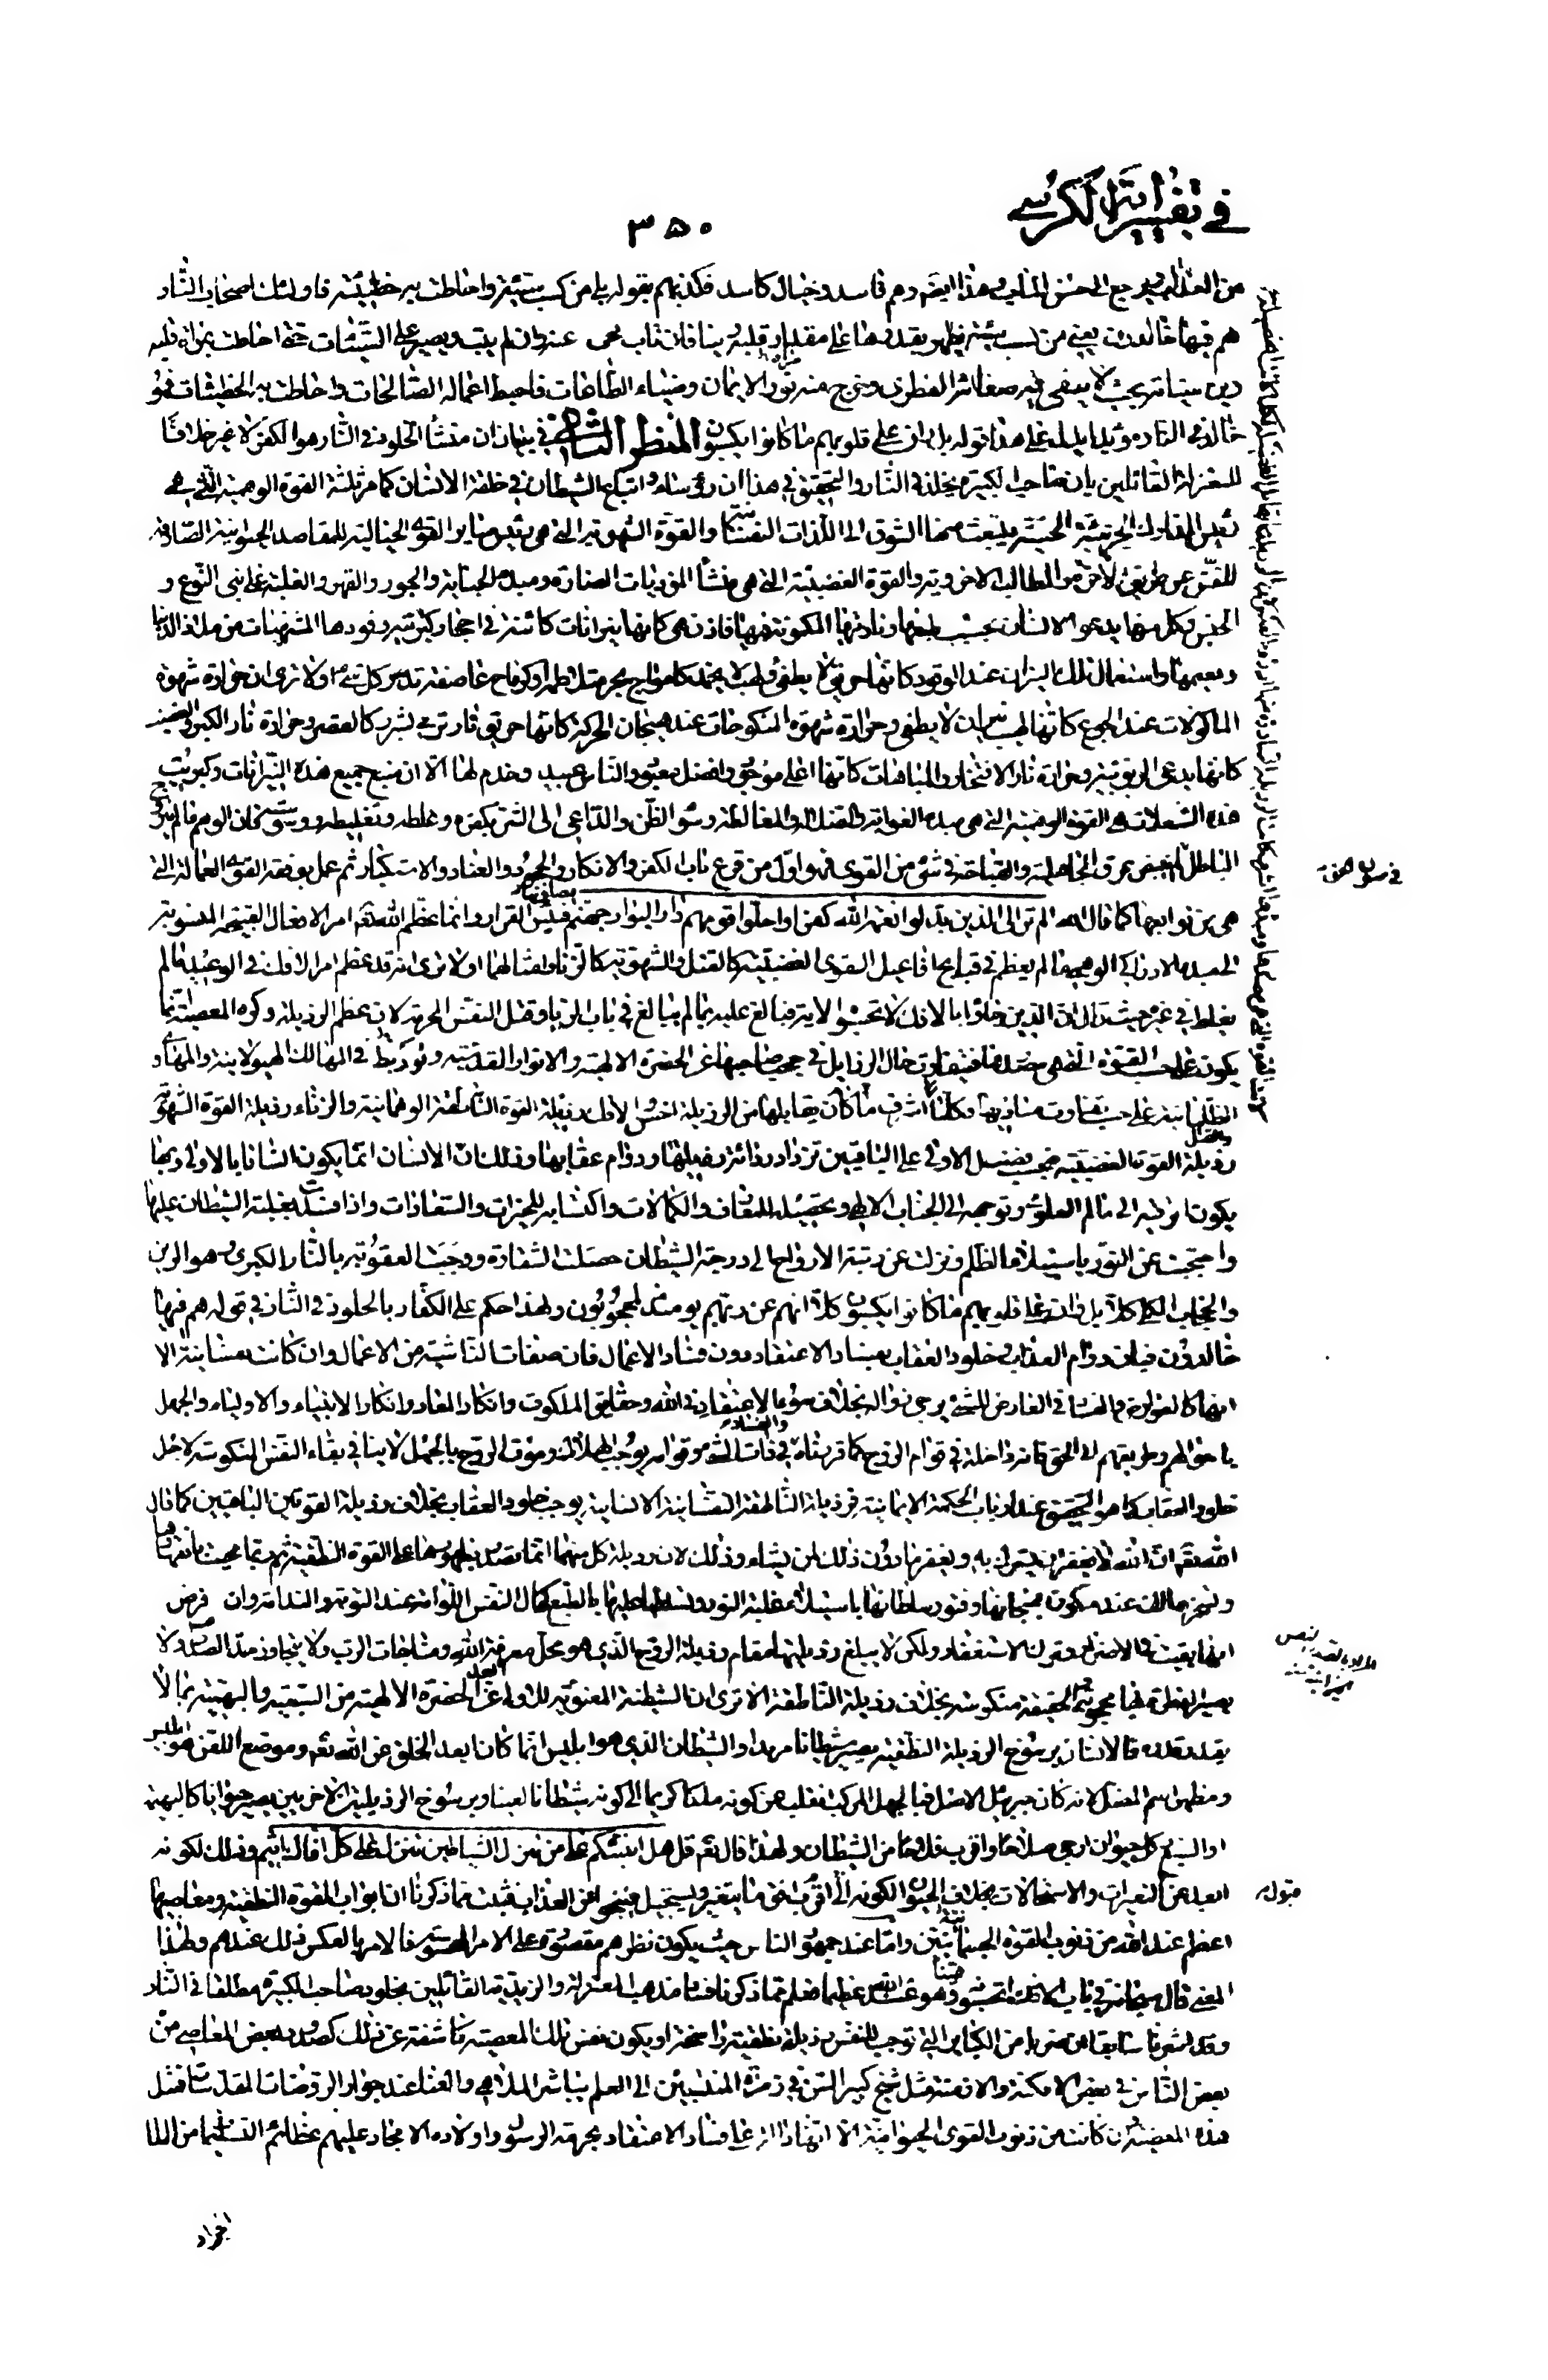 في تفسير آية الكرسي
٣٥٠
من العذاب ويرجع الى حسن المآب وهذا ايضا وهم فاسد وخيال كاسد فكذبهم بقوله بلى من كسب سيئة واحاطت به خطيئته فاولئك اصحاب النار
هم فيها خالدون يعني من كسب سيئة يظهر بقدرها على مقدار قلبه رينا فان تاب محى عنه وان لم يتب ويصر على السيئات حتى احاطت بمرآة قلبه
رين سيئاته بحيث لا يبقى فيه صفا الفطرى وخرج منه نور الايمان وضياء الطاعات فاحبط اعماله الصالحات واحاطت به الخطيئات فهو
خالد في النار ويدل على هذا قوله بل ران على قلوبهم ما كانوا يكسبون المنظر في بيان ان منشأ الخلود في النار هو الكفر لا غير خلافا
للمعتزلة القائلين بان صاحب الكبيرة يخلد في النار والتحقيق في هذا ان رؤساء اتباع الشيطان في خلقة الانسان كما مر ثلثة القوة الوهمية التي هي
المدارك الجزئية الحسية ينبعث منها الشوق الى اللذات والقوة الشهوية التي هي القوى الخيالية للمقاصد الحيوانية الصادفة
للنفس عن طريق الآخرة والمطالب الاخروية والقوة الغضبية التي هي منشأ الموذيات الضارة ومبدء الجناية والجور والقهر والغلبة على بني النوع و
الجنس وكل منها يدعو الانسان بحسب طبعها ونارها المكمونة فيها فاذن هي كانها نيرانات كائنة في احجار كبريتية وقودها المشتهيات من ملاذ الدنيا
ونعيمها واستعمال تلك النيران عند الوقود كانها حريق لا يطفى ولهب لا يخمد كامواج بحر متلاطم او كرياح عاصفة تدمر كل شيء اولا ترى ان حرارة شهوة
الماكولات عند الجوع كانها لهب نيران لا يطفى وحرارة شهوة المنكوحات عند هيجان الحركة كانها حريق نار ترمي بشرر كالقصر وحرارة نار الكبر
كانها يدعى الربوبية وحرارة نار الافتخار والمباهات كانها اعلى موجود وافضل معبود والناس عبيد وخدم لها الا ان منبع جميع هذه النيرانات وكبريت
هذه الشعلات هي القوة الوهمية التي هي مبدء الغواية والضلالة والمغالطة وسوء الظن والداعي الى الشر بكفره وغلطه وتغليطه
الباطل لم ينبض عرق الجاهلية والقباحة في شيء من القوى فهو اول من قرع باب الكفر والانكار والجحود والعناد والاستكبار ثم عمل بوفقه القوى العمالة التي
هي من توابعها كما قال الله الم تر الى الذين بدلوا نعمة الله كفرا واحلوا قومهم دار البوار جهنم يصلونها فبئس القرار وانما عظم الله تعالى امر الافعال القبيحة المنسوبة
الى مبدء الادراك الوهمي ما لم يعظم في قبايح افاعيل القوى الغضبية كالقتل والشهوية كالزنا وامثالهما اولا ترى انه قد عظم امر الافك في الوعيد ما لم
يغلظ في غيره حيث قال ان الذين جاؤا بالافك لا تحسبوا الآية فبالغ عليه بما لم يبالغ في باب الزنا وقتل النفس المحرمة لان عظم الرذيلة وكبر المعصية انما
يكون على حسب القوة التي هي مصدرها فيتفاوت حال الرذايل في حجب صاحبها عن الحضرة الالهية والانوار القدسية وتوريطه في المهالك الهيولانية والمهاوي
الظلمانية على حسب تفاوت مباديها وكلما كانت اشرف ما كان يقابلها من الرذيلة اخس لا رذيلة القوة الناطقة الوهمانية والزناء رذيلة القوة الشهوية والقتل
رذيلة القوة الغضبية فبحسب فضل الاولى على الباقيتين تزداد رذالة رذيلتها ودوام عقابها وذلك لان الانسان انما يكون انسانا بالاولى وبها
يكون ترقيه الى عالم العلوي وتوجهه الى الجناب الالهي وتحصيله للمعارف والكمالات واكتسابه للخيرات والسعادات واذا فسدت بغلبة الشيطان عليها
واحتجبت عن النور باستيلاء الظلم ونزلت عن رتبة الارواح الى درجة الشيطان حصلت الشقاوة ووجبت العقوبة بالنار الكبرى وهو الرين
والحجاب الكلي كلا بل ران على قلوبهم ما كانوا يكسبون كلا انهم عن ربهم يومئذ لمحجوبون ولهذا حكم على الكفار بالخلود في النار في قوله هم فيها
خالدون فبان دوام العذاب وخلود العقاب بفساد الاعتقاد دون فساد الاعمال فان صفات الناشية من الاعمال وان كانت نفسانية الا
انها كالعوارض والفساد في العارض للشيء يرجى زواله بخلاف سوء الاعتقاد في الله وحقايق الملكوت وانكار المعاد وانكار الانبياء والاولياء والجهل
باحوالهم وطريقتهم الى الحق فانه داخلة في قوام الروح كما قررناه والفساد في ذات الشيء وقوامه يوجب الهلاك وموت الروح بالجهل لا ينافي بقاء النفس المنكوسة لاجل
خلود العقاب كما هو التحقيق عند ارباب الحكمة الايمانية فرذيلة الناطقة النفسانية الانسانية يوجب خلود العقاب بخلاف رذيلة القوتين الباقيتين كما قال
الله تعالى ان الله لا يغفر ان يشرك به ويغفر ما دون ذلك لمن يشاء وذلك لان رذيلة كل منهما انما تصدر بظهورهما على القوة النطقية ثم ربما محيت بانقهارها
وتسخرها لها عند سكون هيجانها وفتور سلطانها باستيلاء غلبة النور وتسلطها عليها بالطبع كحال النفس اللوامة عند التوبة والندامة وان فرض
انها بقيت في الاصرار وترك الاستغفار ولكن لا يبلغ رذيلتها مقام رذيلة الروح الذي هو محل معرفة الله ومناجات الرب ولا يتجاوز حد الصدر ولا
يصير الفطرة بها محجوبة الحقيقة منكوسة بخلاف رذيلة الناطقة الا ترى ان الشيطنة المغوية ابعد عن الحضرة الالهية من السبعية والبهيمية بما لا
يقدر قدره فالانسان برسوخ الرذيلة النطقية يصير شيطانا مريدا والشيطان الذي هو ابليس انما كان ابعد الخلق عن الله تعالى وموضع اللعن
ومظهر اسم المضل لانه كان جبرئيل الاصل فبالجهل المركب انقلب من كونه ملكا كريما الى كونه شيطانا لعينا وبرسوخ الرذيلتين الاخريين يصير حيوانا كالبهيمة
او السبع وكل حيوان ارجى صلاحا واقرب فلاحا من الشيطان ولهذا قال تعالى قل هل انبئكم على من تنزل الشياطين تنزل على كل افاك اثيم وذلك لكونه
ابعد من التغيرات والاستحالات بخلاف الحيوان لكونه الى افق ما يتغير ويستحيل فينجو من العذاب فثبت مما ذكرنا ان ابواب القوة النطقية ومعاصيها
اعظم عند الله من ذنوب القوة الجسمانيتين واما عند جمهور الناس حيث يكون نظرهم مقصورة على الامر المحسوس فالامر بالعكس من ذلك عندهم ولهذا
المعنى قال سبحانه في باب الافك تحسبونه هينا وهو عند الله عظيم فعلم مما ذكرنا فساد مذهب المعتزلة والزيدية القائلين بخلود صاحب الكبيرة مطلقا في النار
وقد اشرنا سابقا ان ضربا من الكباير التي توجب للنفس رذيلة نطقية راسخة او يكون نفس تلك المعصية كاشفة عن ذلك كصدور بعض المعاصي من
بعض الناس في بعض الامكنة والازمنة مثل شيخ كبير السن في زمرة المنتسبين الى العلم يباشر الملاهي والغناء عند جوار الروضات المقدسات فمثل
هذه المعصية وان كانت من ذنوب القوى الحيوانية الا انها دالة على فساد الاعتقاد بحرمة الرسول واولاده الامجاد عليهم عظائم التسليمات من الله
الجواد